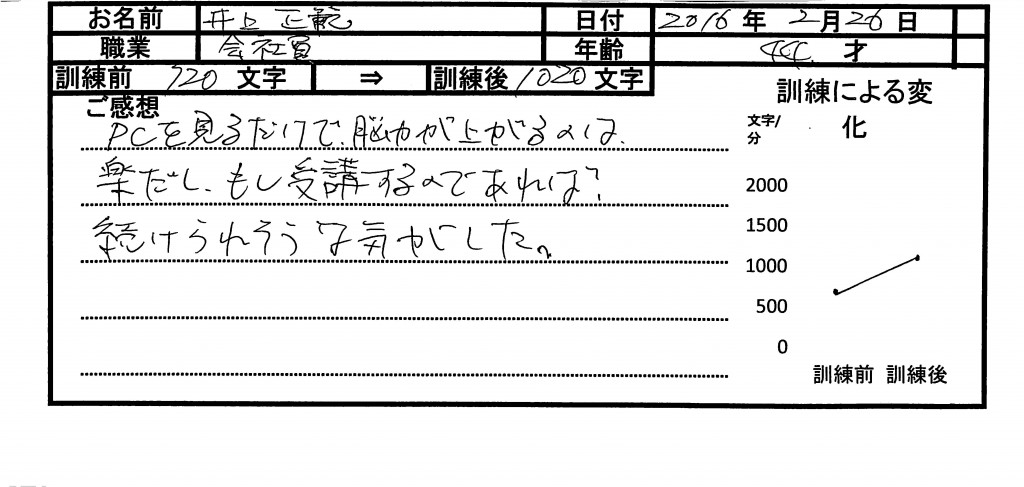 お名前 井上 正範 日付 2016年 2月26日
職業 会社員 年齢 44才
訓練前 720文字 ⇒ 訓練後 1020文字
ご感想
PCを見るだけで、脳力が上がるのは、
楽だし、もし受講するのであれば、
続けられそうな気がした。
訓練による変
化
文字/
分
2000
1500
1000
500
0
訓練前 訓練後